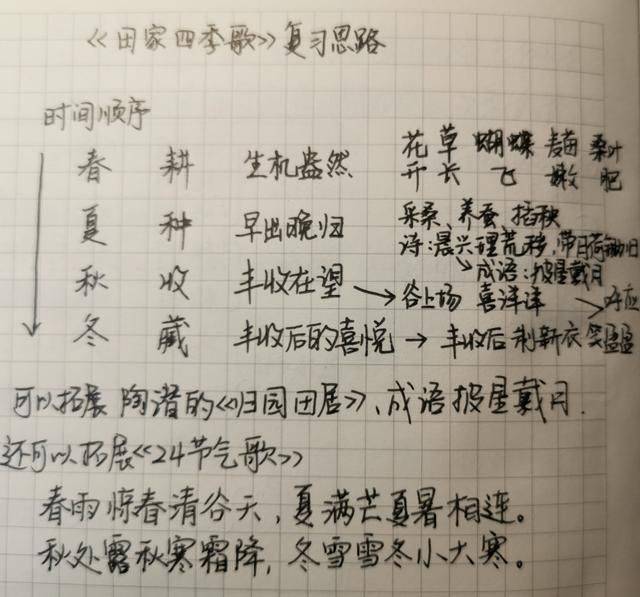 《田家四季歌》复习思路
时间顺序
花 草 蝴蝶 麦苗 桑叶
春 耕 生机盎然 开 长 飞 嫩 肥
夏 种 早出晚归 采桑、养蚕、插秧
诗:晨兴理荒秽,带月荷锄归
成语:披星戴月
秋 收 丰收在望 → 谷上场 喜洋洋 呼应
冬 藏 丰收后的喜悦 → 丰收后 制新衣 笑盈盈
可以拓展 陶潜的《归园田居》、成语披星戴月.
还可以拓展《24节气歌》
春雨惊春清谷天,夏满芒夏暑相连。
秋处露秋寒霜降,冬雪雪冬小大寒。